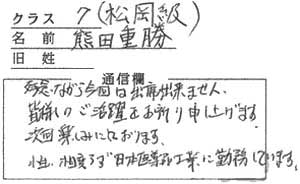 クラス 7(松岡級)
名前 熊田重勝
旧姓
通信欄
残念ながら今回は出席出来ません。
皆様のご活躍をお祈り申し上げます
次回楽しみにしております。
小生、相変らず日本医薬品工業に勤務しています。